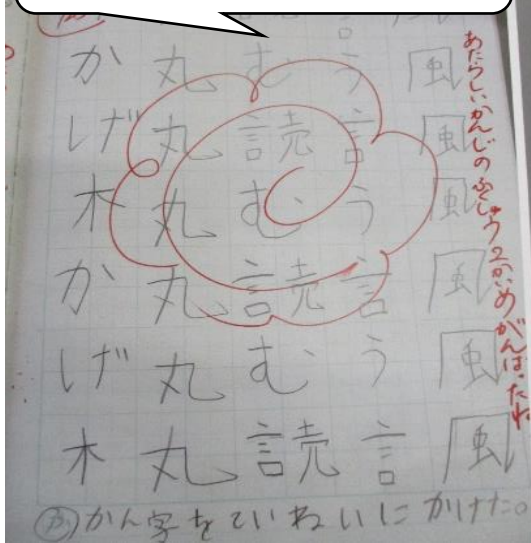 風
風
風
風
風
風
う
言
う
言
う
言
む
読
む
読
む
読
丸
丸
丸
丸
丸
丸
か
げ
木
か
げ
木
あたらしいかんじのふくしゅう2かいめがんばったね
かん字をていねいにかけた。